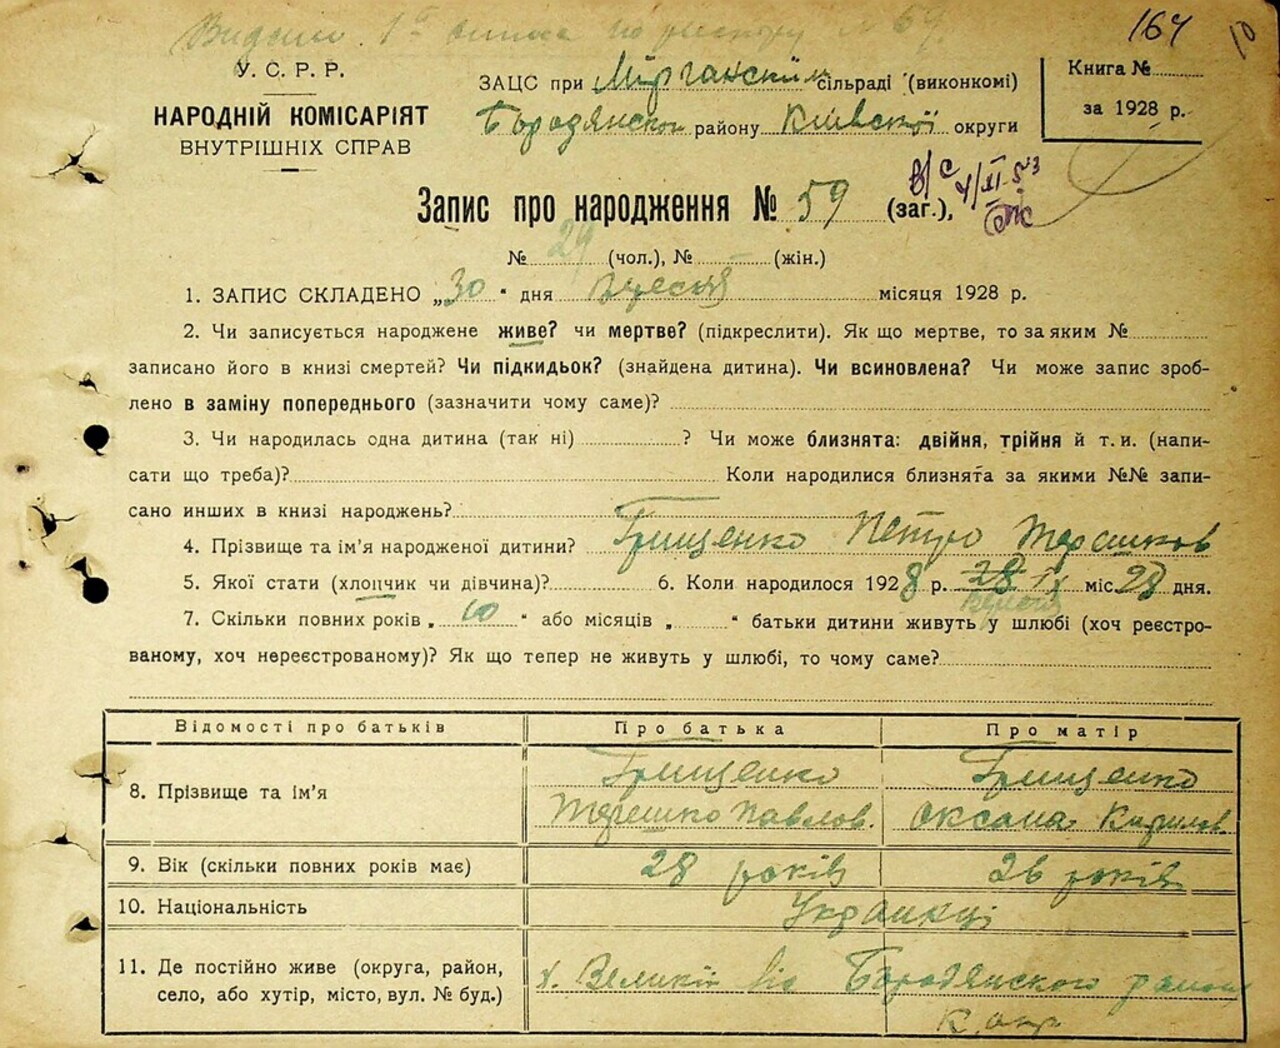 Видано 1ᵃ
164
10
У. С. Р. Р.
НАРОДНІЙ КОМІСАРІЯТ
ВНУТРІШНІХ СПРАВ
ЗАЦС при сільраді (виконкомі)
Бородянськ району Київської округи
Книга №
за 1928 р.
Запис про народження № 59 (заг.),
в/с 4/XI-53
№ 29 (чол.), № – (жін.)
1. ЗАПИС СКЛАДЕНО „30" дня вресня місяця 1928 р.
2. Чи записується народжене живе? чи мертве? (підкреслити). Як що мертве, то за яким №
записано його в книзі смертей? Чи підкидьок? (знайдена дитина). Чи всиновлена? Чи може запис зроб-
лено в заміну попереднього (зазначити чому саме)?
3. Чи народилась одна дитина (так ні) ? Чи може близнята: двійня, трійня й т. и. (напи-
сати що треба)? Коли народилися близнята за якими №№ запи-
сано инших в книзі народжень?
4. Прізвище та ім'я народженої дитини? Грищенко Петро Терешков
5. Якої стати (хлопчик чи дівчина)? 6. Коли народилося 1928 р. 28 IX міс. 28 дня.
7. Скільки повних років „10" або місяців „ " батьки дитини живуть у шлюбі (хоч реєстро-
ваному, хоч нереєстрованому)? Як що тепер не живуть у шлюбі, то чому саме?
Відомості про батьків Про батька Про матір
8. Прізвище та ім'я Грищенко Терешко Павлов. Грищенко Оксана Кирилов.
9. Вік (скільки повних років має) 28 років 26 років
10. Національність Украинці
11. Де постійно живе (округа, район,
село, або хутір, місто, вул. № буд.) х. Великий Бородянського району
К. окр